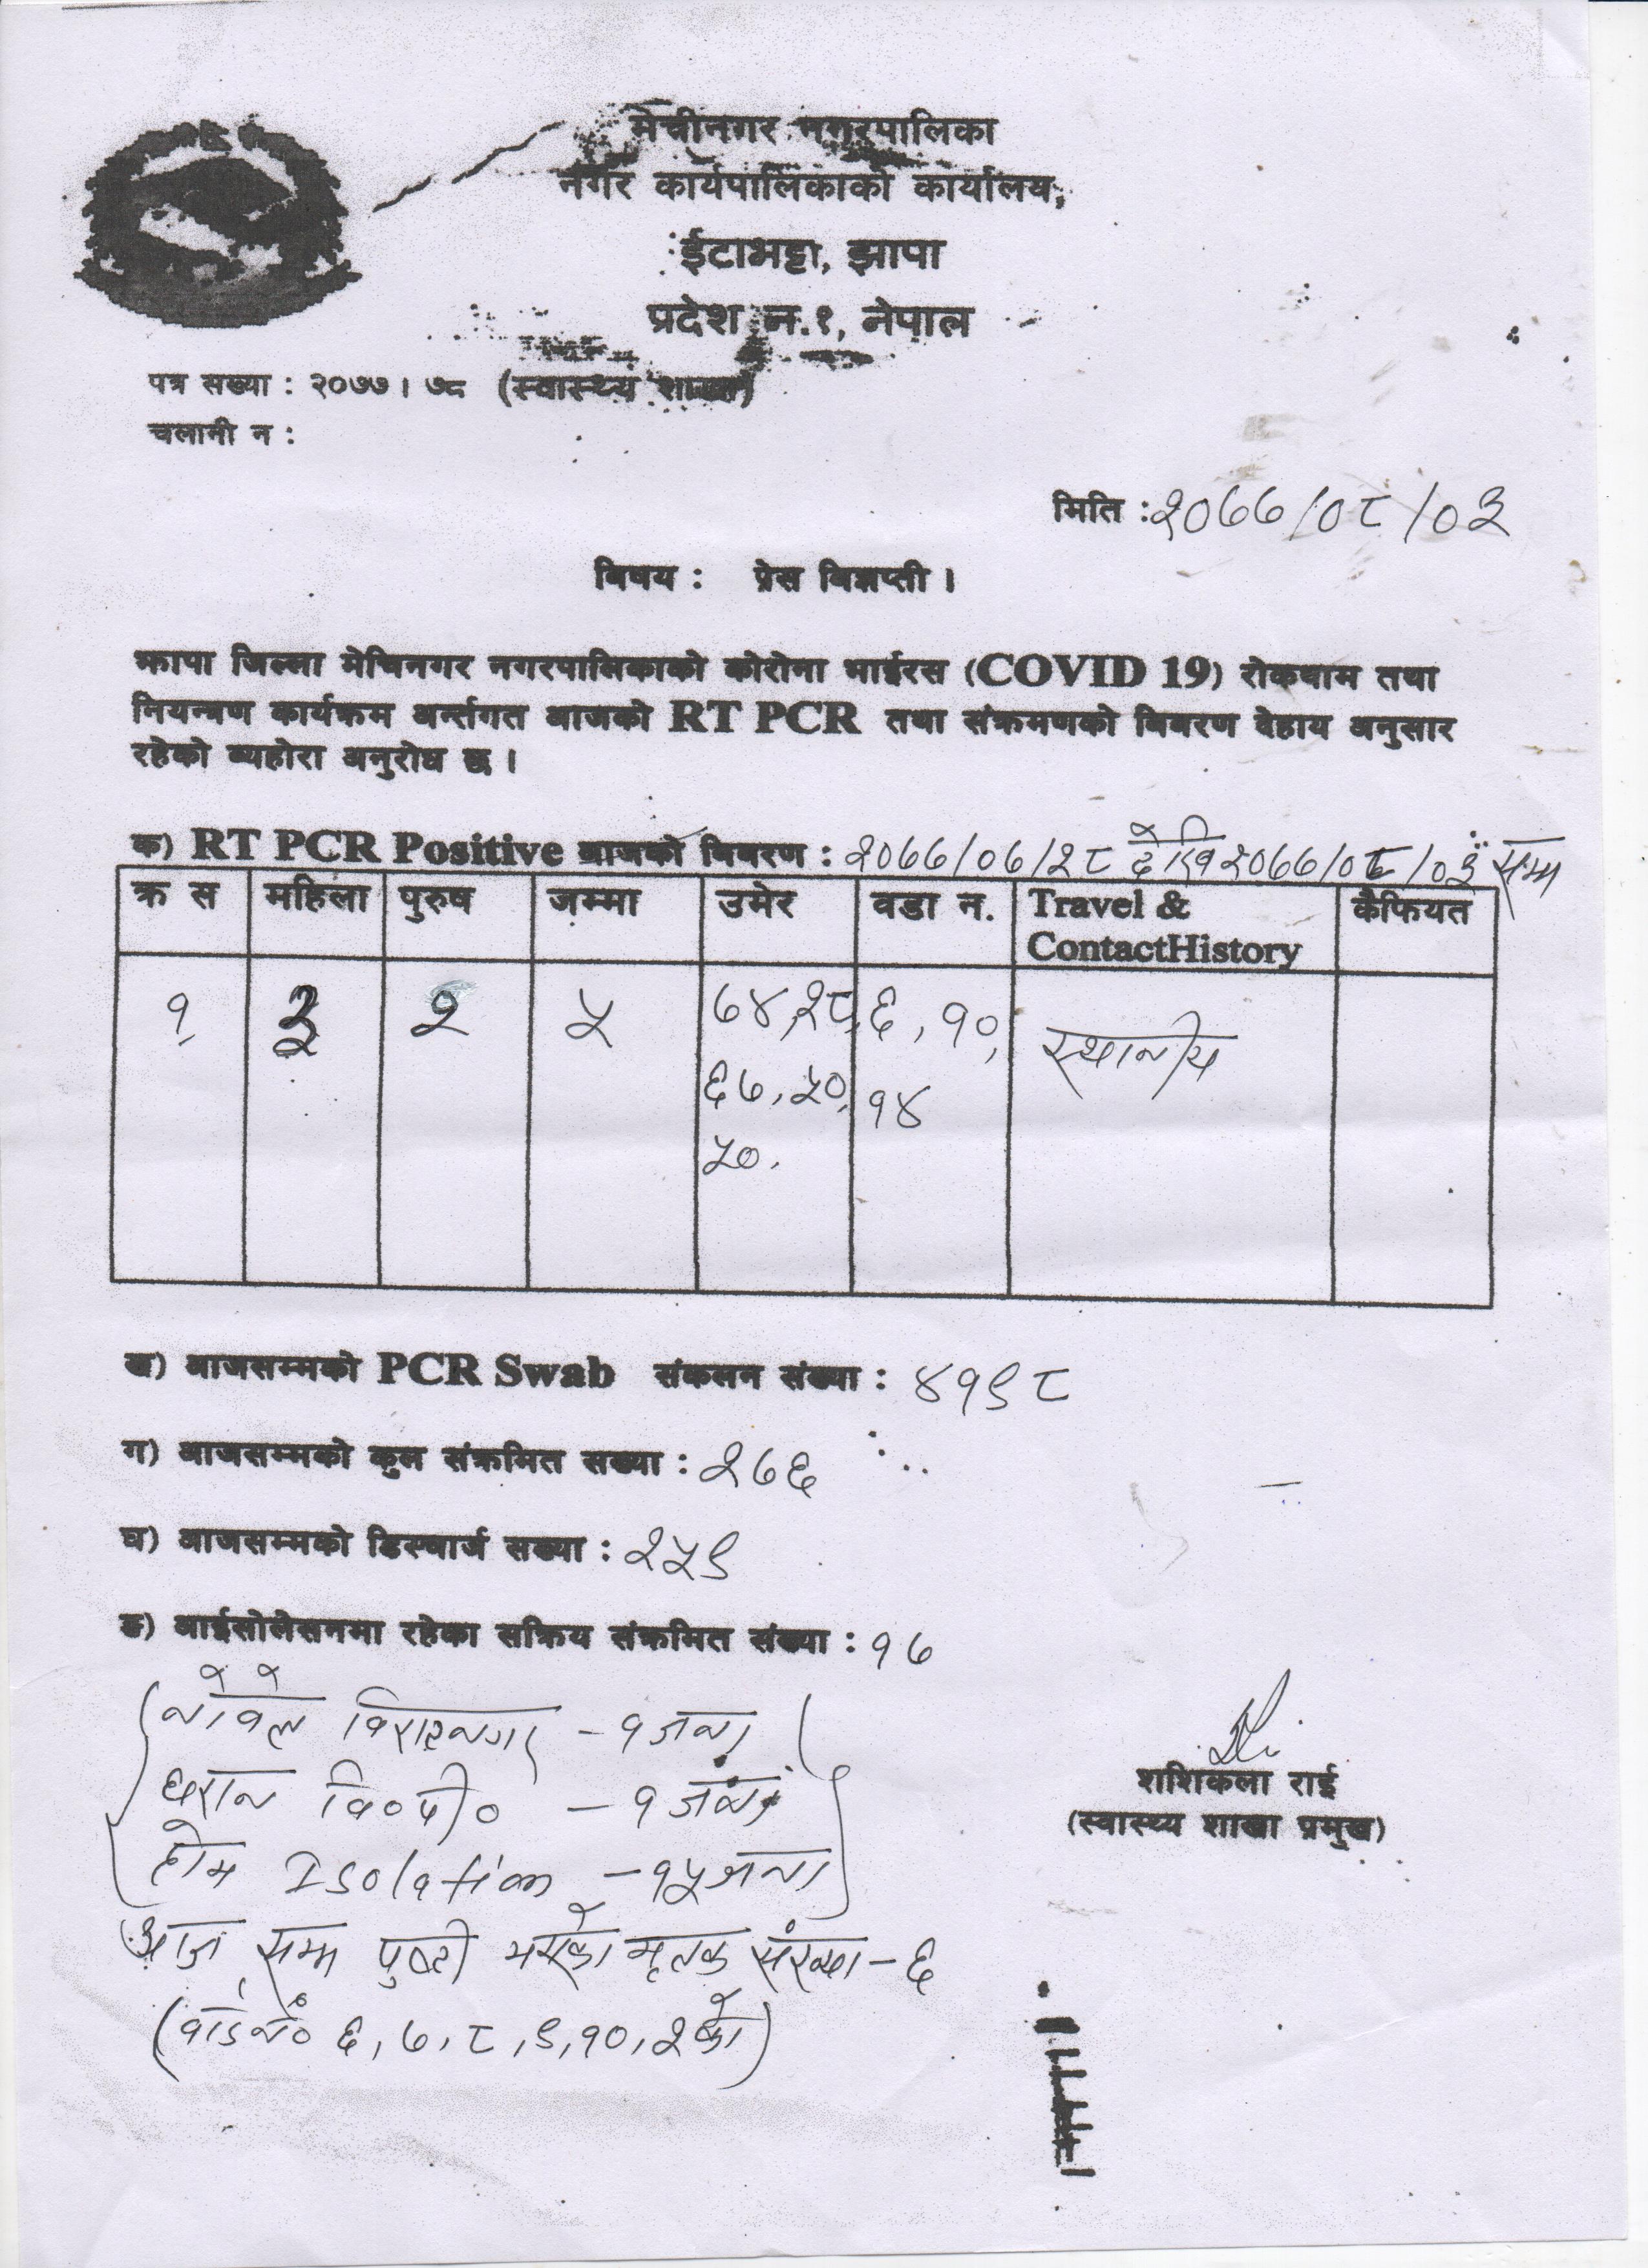 मेचीनगर नगरपालिका
नगर कार्यपालिकाको कार्यालय,
ईटाभट्टा, झापा
प्रदेश न.१, नेपाल
पत्र सख्या : २०७७। ७८ (स्वास्थ्य शाखा)
चलानी न :
मिति : २०७७/०८/०३
विषय : प्रेस विज्ञप्ती ।
झापा जिल्ला मेचिनगर नगरपालिकाको कोरोना भाईरस (COVID 19) रोकथाम तथा
नियन्त्रण कार्यक्रम अर्न्तगत आजको RT PCR तथा संक्रमणको विवरण देहाय अनुसार
रहेको व्यहोरा अनुरोध छ ।
क) RT PCR Positive आजको विवरण : २०७७/०७/२८ देखि २०७७/०८/०३ सम्म
क्र स महिला पुरुष जम्मा उमेर वडा न. Travel & कैफियत
ContactHistory
१ ३ २ ५ ७४,२८, ६, १०, स्थानीय
६७, ५०, १४
५०.
ख) आजसम्मको PCR Swab संकलन संख्या : ४१९८
ग) आजसम्मको कुल संक्रमित सख्या : २७६
घ) आजसम्मको डिस्चार्ज सख्या : २५९
ङ) आईसोलेसनमा रहेका सक्रिय संक्रमित संख्या : १७
नोवेल विराटनगर - १ जना
धरान वि०पी० - १ जना
होम Isolation - १५ जना
आज सम्म पुष्टी भएको मृतक संख्या - ६
(वार्ड नं० ६, ७, ८, ९, १०, २ को)
शशिकला राई
(स्वास्थ्य शाखा प्रमुख)